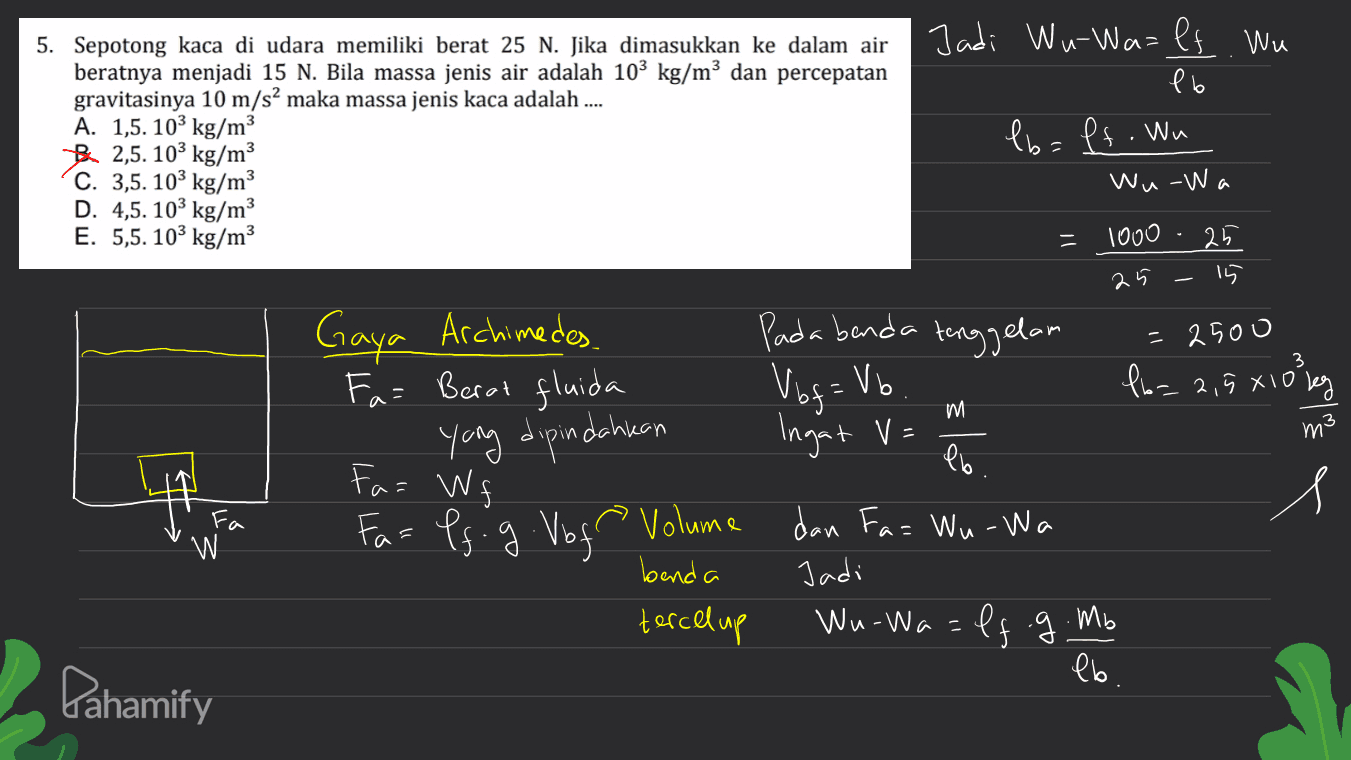 5. Sepotong kaca di udara memiliki berat 25 N. Jika dimasukkan ke dalam air
beratnya menjadi 15 N. Bila massa jenis air adalah 10³ kg/m³ dan percepatan
gravitasinya 10 m/s² maka massa jenis kaca adalah ....
A. 1,5. 10³ kg/m³
B. 2,5. 10³ kg/m³
C. 3,5. 10³ kg/m³
D. 4,5. 10³ kg/m³
E. 5,5. 10³ kg/m³
Fa
W
Gaya Archimedes.
Fa = Berat fluida
yang dipindahkan
Fa = Wf
Fa = ρf . g . Vbf
Volume
benda
tercelup
Pada benda tenggelam
Vbf = Vb.
Ingat V = m
ρb.
dan Fa = Wu - Wa
Jadi
Wu - Wa = ρf . g . Mb
ρb.
Jadi Wu - Wa = ρf . Wu
ρb
ρb = ρf . Wu
Wu - Wa
= 1000 . 25
25 - 15
= 2500
ρb = 2,5 x 10³ kg
m³
Pahamify